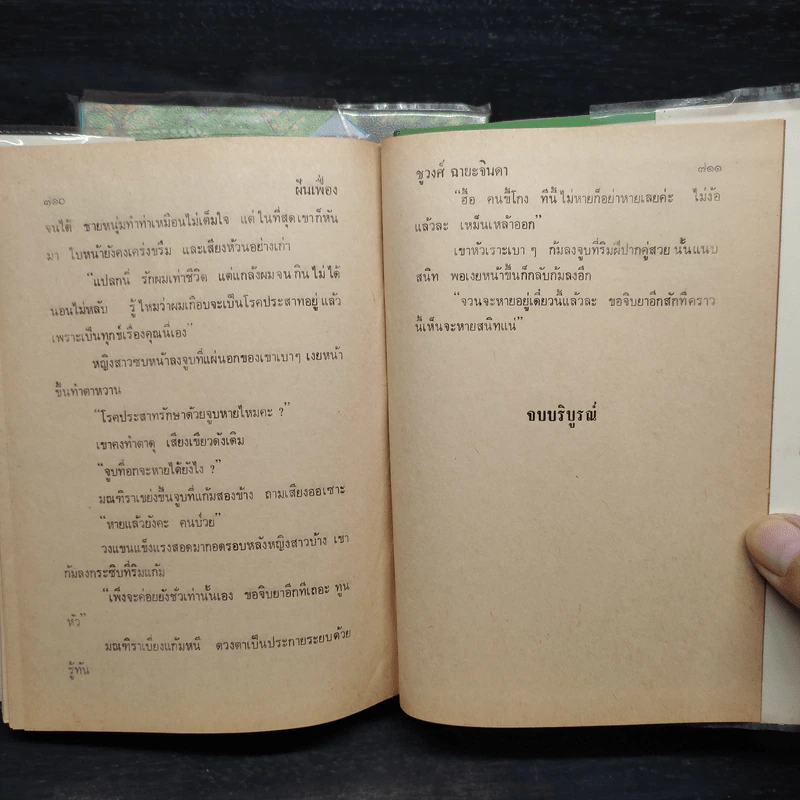 ๗๑๐
ฝันเฟื่อง
จนได้ ชายหนุ่มทำท่าเหมือนไม่เต็มใจ แต่ในที่สุดเขาก็หัน
มา ใบหน้ายังคงเคร่งขรึม และเสียงห้วนอย่างเก่า
“แปลกนี่ รักผมเท่าชีวิต แต่แกล้งผมจนกินไม่ได้
นอนไม่หลับ รู้ไหมว่าผมเกือบจะเป็นโรคประสาทอยู่แล้ว
เพราะเป็นทุกข์เรื่องคุณนี่เอง”
หญิงสาวซบหน้าลงจูบที่แผ่นอกของเขาเบาๆ เงยหน้า
ขึ้นทำตาหวาน
“โรคประสาทรักษาด้วยจูบหายไหมคะ ?”
เขาคงทำตาดุ เสียงเขียวดังเดิม
“จูบที่อกจะหายได้ยังไง ?”
มณฑิราเขย่งขึ้นจูบที่แก้มสองข้าง ถามเสียงออเซาะ
“หายแล้วยังคะ คนป่วย”
วงแขนแข็งแรงสอดมากอดรอบหลังหญิงสาวบ้าง เขา
ก้มลงกระซิบที่ริมแก้ม
“เพิ่งจะค่อยยังชั่วเท่านั้นเอง ขอจิบยาอีกทีเถอะ ทูน
หัว”
มณฑิราเบี่ยงแก้มหนี ดวงตาเป็นประกายระยับด้วย
รู้ทัน
ชูวงศ์ ฉายะจินดา
๗๑๑
“ฮื้อ คนขี้โกง ทีนี้ไม่หายก็อย่าหายเลยค่ะ ไม่ง้อ
แล้วละ เหม็นเหล้าออก”
เขาหัวเราะเบา ๆ ก้มลงจูบที่ริมฝีปากคู่สวย นั้นแนบ
สนิท พอเงยหน้าขึ้นก็กลับก้มลงอีก
“จวนจะหายอยู่เดี๋ยวนี้แล้วละ ขอจิบยาอีกสักทีคราว
นี้เห็นจะหายสนิทแน่”
จบบริบูรณ์